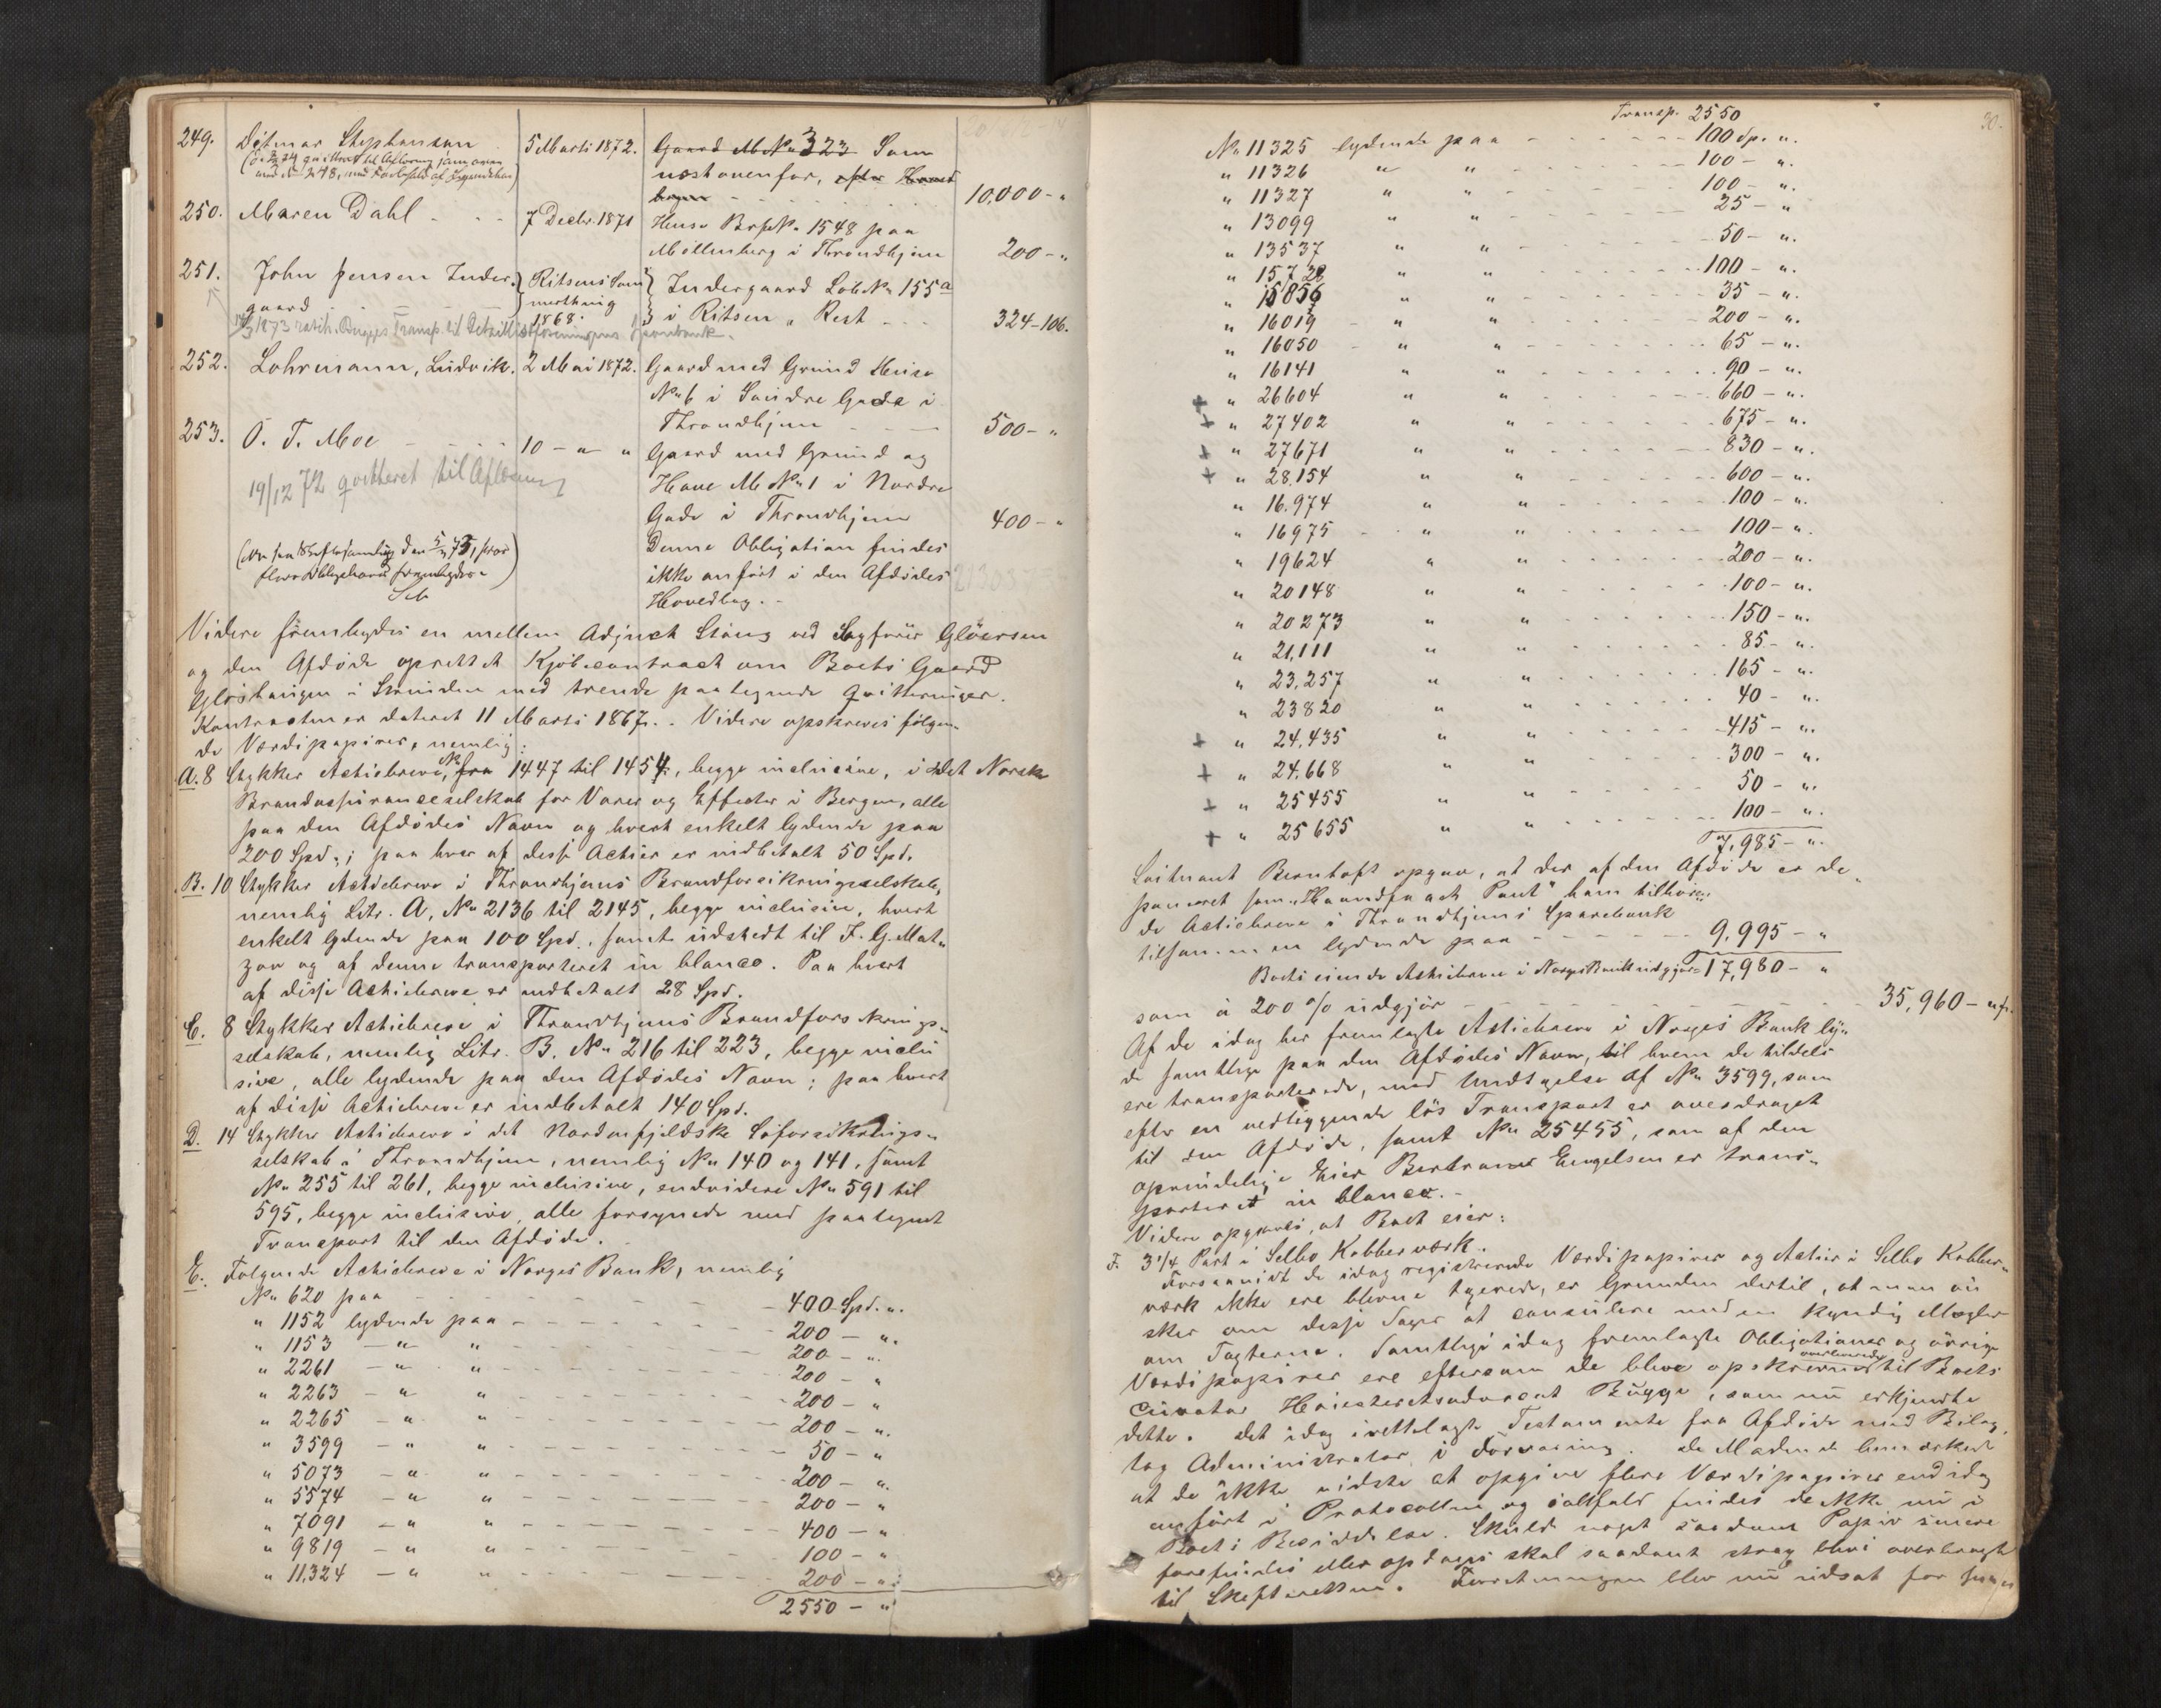 249. Ditmar Stephansen 5 Marti 1872. Gaard M No 323 Som
næst ovenfor, efter Hoved
bogen 10,000 - "
250. Maren Dahl - - - 7 Decbr. 1871 Huus BrpNo 1548 paa
Möllenberg i Throndhjem 200 - "
251. John Jensen Inder- Ritsens Som Indergaard Löb No 155a
gaard merthing i Ritsen, Rest - - - 324-106.
1868.
14/3 1873 Bugges Transp. til
252. Lohrmann, Ludvik. 2 Mai 1872. Gaard med Grund Huus
No 6 i Söndre Gade i
Throndhjem 500 - "
253. O. T. Moe 10 - " " Gaard med Grund og
Have M No 1 i Nordre
19/12 72 qvitteret til Aflæsning
Gade i Throndhjem 400 - "
Denne Obligation findes
ikke anfört i den Afdödes
Hovedbog. -
Videre fremlagdes en mellem Adjunct Stang ved Sagförer Glöersen
og den Afdöde oprettet Kjöbecontract om Boets Gaard
Glöshaugen i Strinden med trende paategnede Qvitteringer.
Kontracten er dateret 11 Marts 1867. - Videre opskreves fölgen-
de Værdipapirer, nemlig:
A. 8 Stykker Actiebreve, No fra 1447 til 1454, begge inclusive, i det Norske
Brandassuranceselskab for Varer og Effecter i Bergen, alle
paa den Afdödes Navn og hvert enkelt lydende paa
200 Spd.; paa hver af disse Actier er indbetalt 50 Spd.
B. 10 Stykker Actiebreve i Throndhjems Brandforsikringsselskab,
nemlig Litr. A, No 2136 til 2145, begge inclusive, hvert
enkelt lydende paa 100 Spd., samt udstedt til F. G. Mat-
zow og af denne transporteret in blanco. Paa hvert
af disse Actiebreve er indbetalt 28 Spd.
C. 8 Stykker Actiebreve i Throndhjems Brandforsikrings-
selskab, nemlig Litr. B. No 216 til 223, begge inclu
sive, alle lydende paa den Afdödes Navn; paa hvert
af disse Actiebreve er indbetalt 140 Spd.
D. 14 Stykker Actiebreve i det Nordenfjeldske Söforsikrings-
selskab i Throndhjem, nemlig No 140 og 141, samt
No 255 til 261, begge inclusive, endvidere No 591 til
595, begge inclusive, alle forsynede med paategnet
Transport til den Afdöde.
E. Fölgende Actiebreve i Norges Bank, nemlig
No 620 paa - 400 Spd. ".
" 1152 lydende paa - 200 - ".
" 1153 - " " - 200 - ".
" 2261 - " " - 200 - "
" 2263 - " " - 200 - "
" 2265 - " " - 200 - ".
" 3599 - " " - 50 - "
" 5073 - " " - 200 - ".
" 5574 - " " - 200 - "
" 7091 - " " - 400 - "
" 9819 - " " - 100 - "
" 11,324 - " " - 200 - ".
2550 - "
30.
Transp. 2550
No 11325 lydende paa - 100 Sp. ".
" 11326 " " - 100 - ".
" 11327 " " - 100 - ".
" 13099 " " - 25 - "
" 13537 " " - 50 - ".
" 15728 " " - 100 - ".
" 15856 " " - 35 - ".
" 16019 " " - 200 - ".
" 16050 " " - 65 - ".
" 16141 " " - 90 - ".
+ " 26604 " " - 660 - ".
+ " 27402 " " - 675 - ".
+ " 27671 " " - 830 - ".
+ " 28.154 " " - 600 - ".
" 16.974 " " - 100 - ".
" 16975 " " - 100 - ".
" 19624 " " - 200 - ".
" 20148 " " - 100 - ".
" 20273 " " - 150 - ".
" 21,111 " " - 85 - ".
" 23,257 " " - 165 - ".
" 23820 " " - 40 - ".
+ " 24,435 " " - 415 - ".
+ " 24,668 " " - 300 - ".
+ " 25455 " " - 50 - ".
+ " 25655 " " - 100 - ".
7,985 - ".
Löitnant Berntoft opgav, at der af den Afdöde er de-
poneret som "Haandfaaet Pant" ham tilhören-
de Actiebreve i Throndhjems Sparebank
tilsammen lydende paa - 9,995 - "
Boets eiende Actiebreve i Norges Bank udgjör = 17,980 - "
som à 200 % udgjör - 35,960 - "
Af de idag her fremlagte Actiebreve i Norges Bank ly-
de samtlige paa den Afdödes Navn, til hvem de tildels
ere transporterede, med Undtagelse af No 3599, som
efter en vedliggende lös Transport er overdraget
til den Afdöde, samt No 25455, som af den
oprindelige Eier Bertrand Engelsen er trans-
porteret in blanco. -
Videre opgaves, at Boet eier:
F. 3 1/4 Part i Selbo Kobberværk.
Forsaavidt de idag registrerede Værdipapirer og Actier i Selbo Kobber-
værk ikke ere blevne taxerede, er Grunden dertil, at man ön
sker om disse Sager at consulere med en kyndig Mægler
om Taxterne. Samtlige idag fremlagte Obligationer og övrige
Værdipapirer ere eftersom de bleve opskrevne overleverede til Boets
Curator Höiesteretsadvocat Bugge, som nu erkjendte
dette. Det idag irettelagte Testamente fra Afdöde med Bilag,
tog Administrator i Forvaring. De Mödende bemærkede
at de ikke vidste at opgive flere Værdipapirer end idag
anfört i Protocollen og ialtfald findes de ikke nu i
Boets Besiddelse. Skulde noget saadant Papir senere
forefindes eller opdages skal saadant strax blive overbragt
til Skifteretten. Forretningen blev nu udsat for